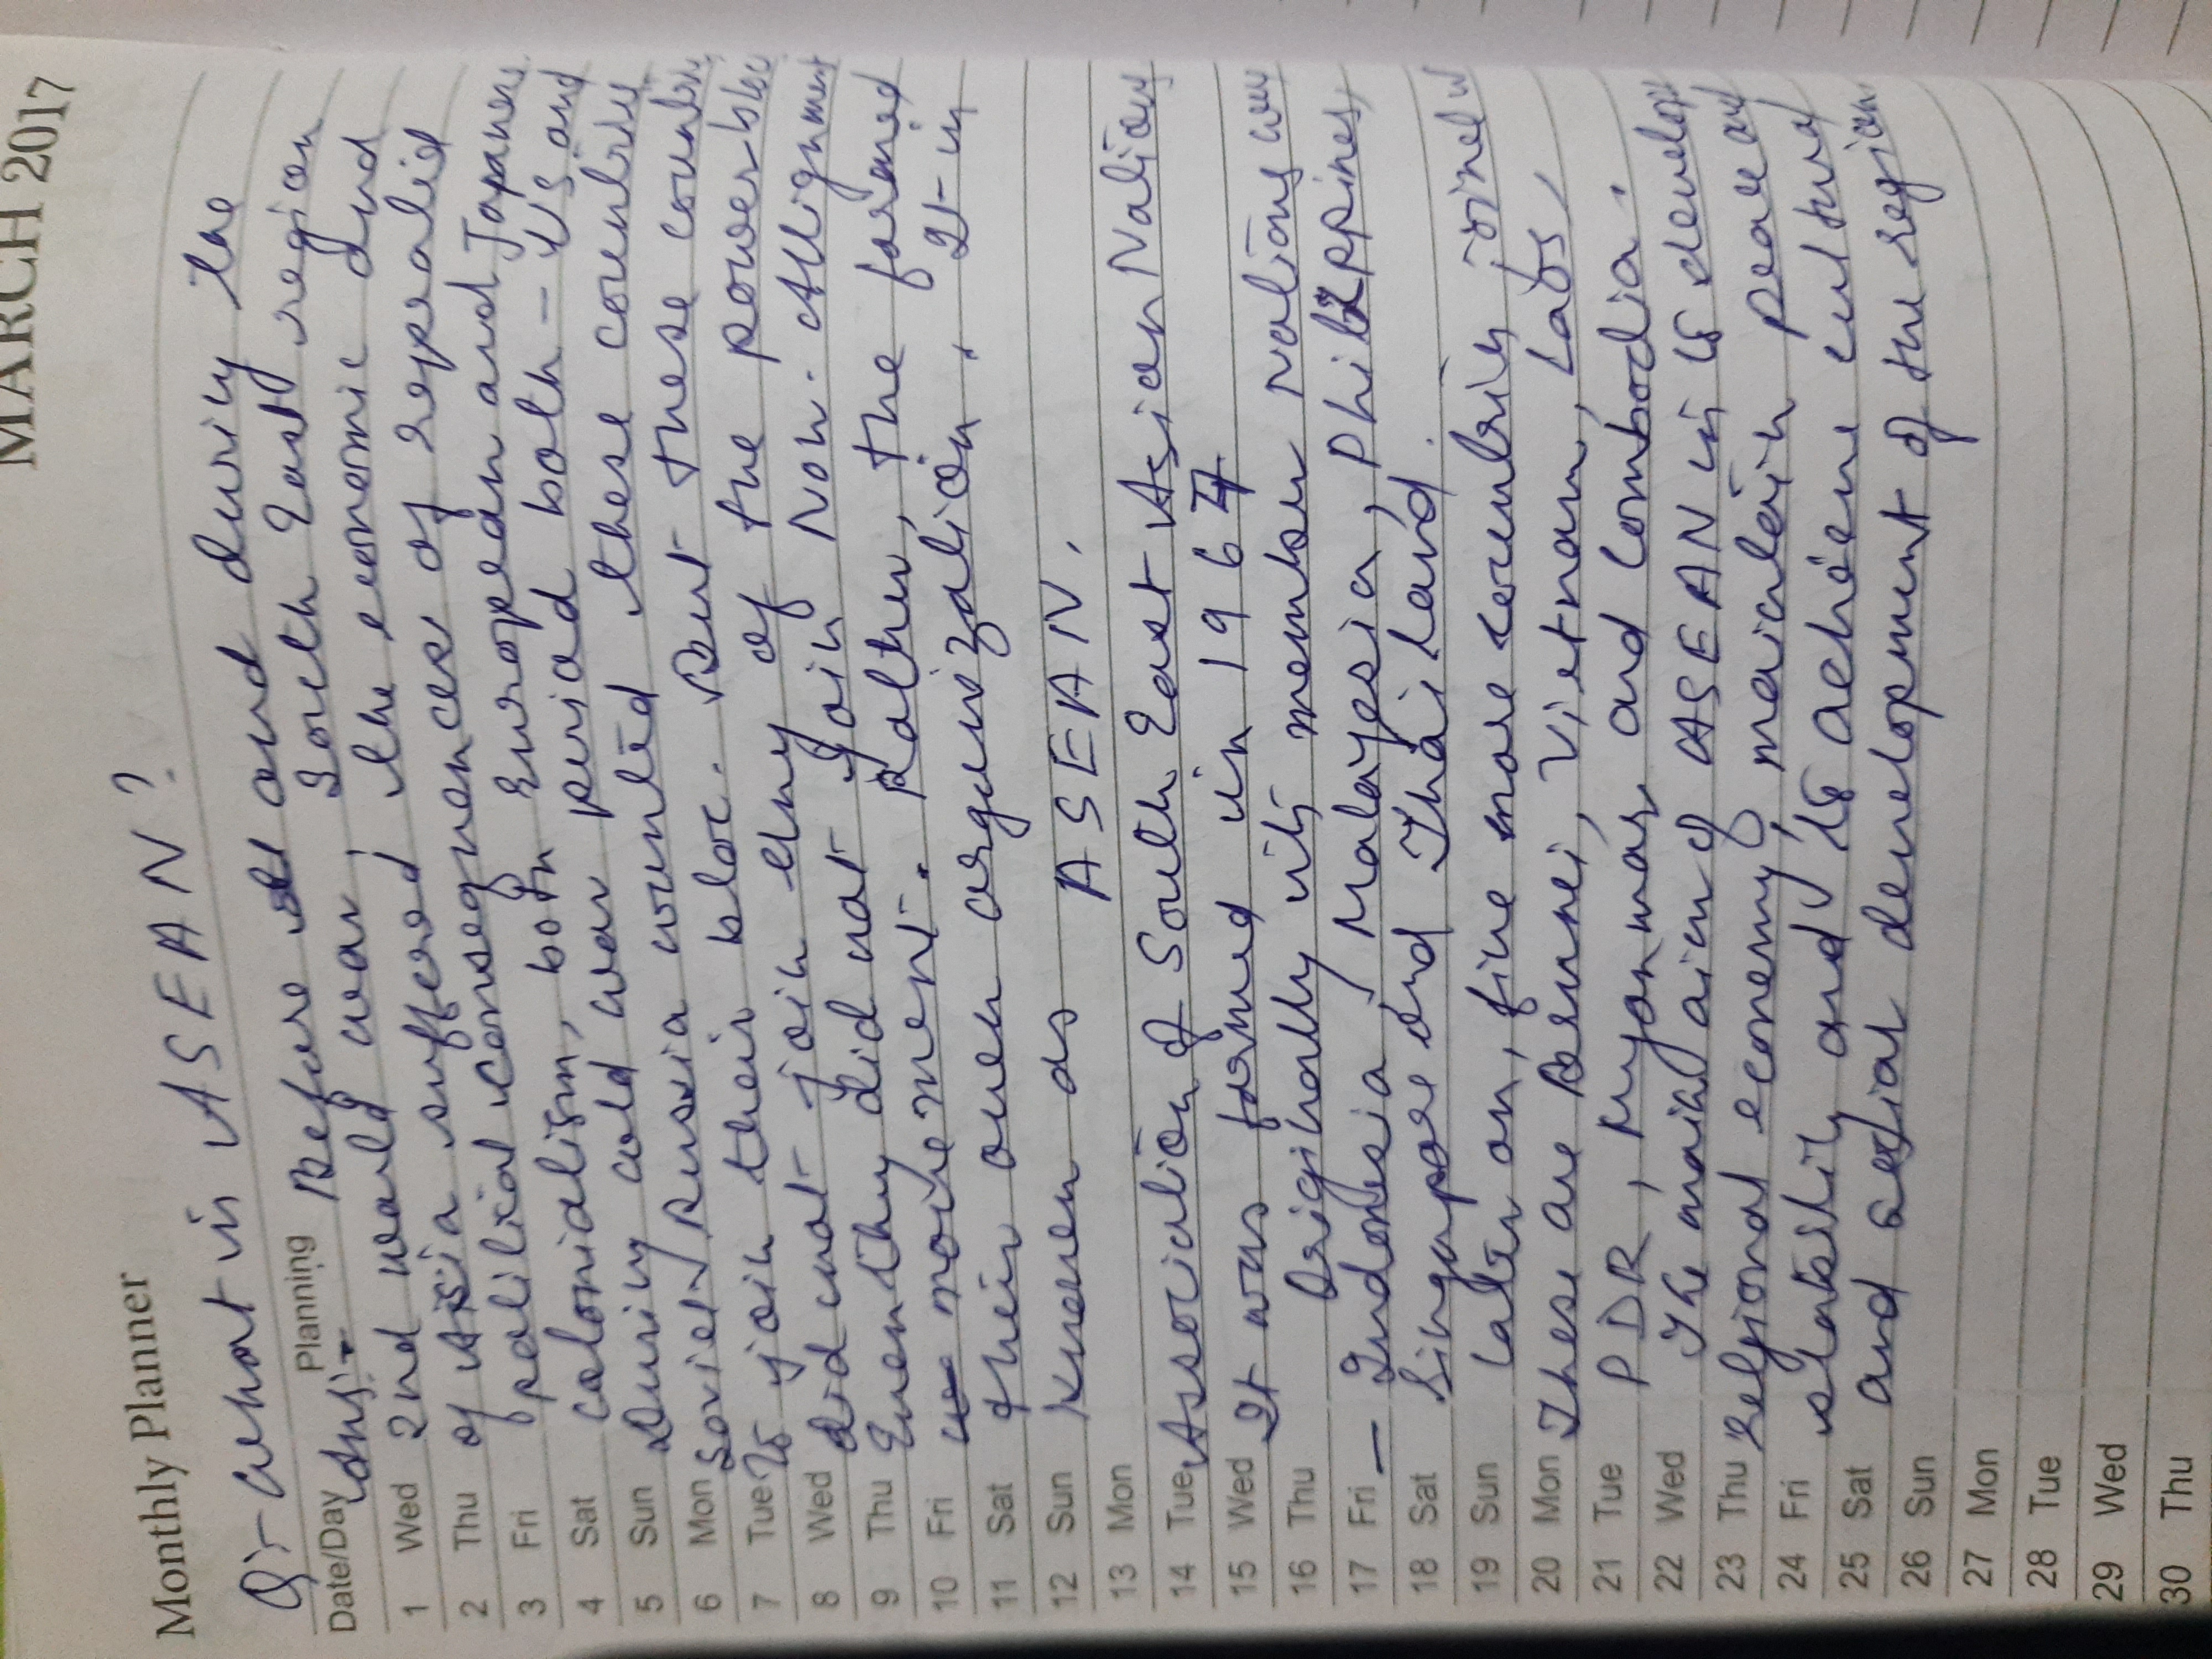 Monthly Planner MARCH 2017
Q:- What is ASEAN?
Date/Day Planning
Ans:- Before and during the
1 Wed 2nd world war, South East region
2 Thu of Asia suffered the economic and
3 Fri political consequences of repeated
4 Sat colonialism, both European and Japanese.
5 Sun During cold war period both - US and
6 Mon Soviet Russia wanted these countries
7 Tue To join their bloc. But these countries
8 Wed did not join any of the power bloc
9 Thu Even they did not join Non-Allignment
10 Fri movement. Rather, the formed
11 Sat their own organization. It is
12 Sun known as ASEAN.
13 Mon
14 Tue Association of South East Asian Nations
15 Wed It was formed in 1967
16 Thu Originally its member Nations were
17 Fri - Indonesia, Malayesia, Philippines,
18 Sat Singapore and Thailand.
19 Sun Later on, five more countries joined
20 Mon These are Bernnei, Vietnam, Laos,
21 Tue PDR, Myanmar and Combodia.
22 Wed The main aim of ASEAN is to develop
23 Thu Regional economy, maintain peace and
24 Fri stability and to achieve cultural
25 Sat and social development of the region
26 Sun
27 Mon
28 Tue
29 Wed
30 Thu